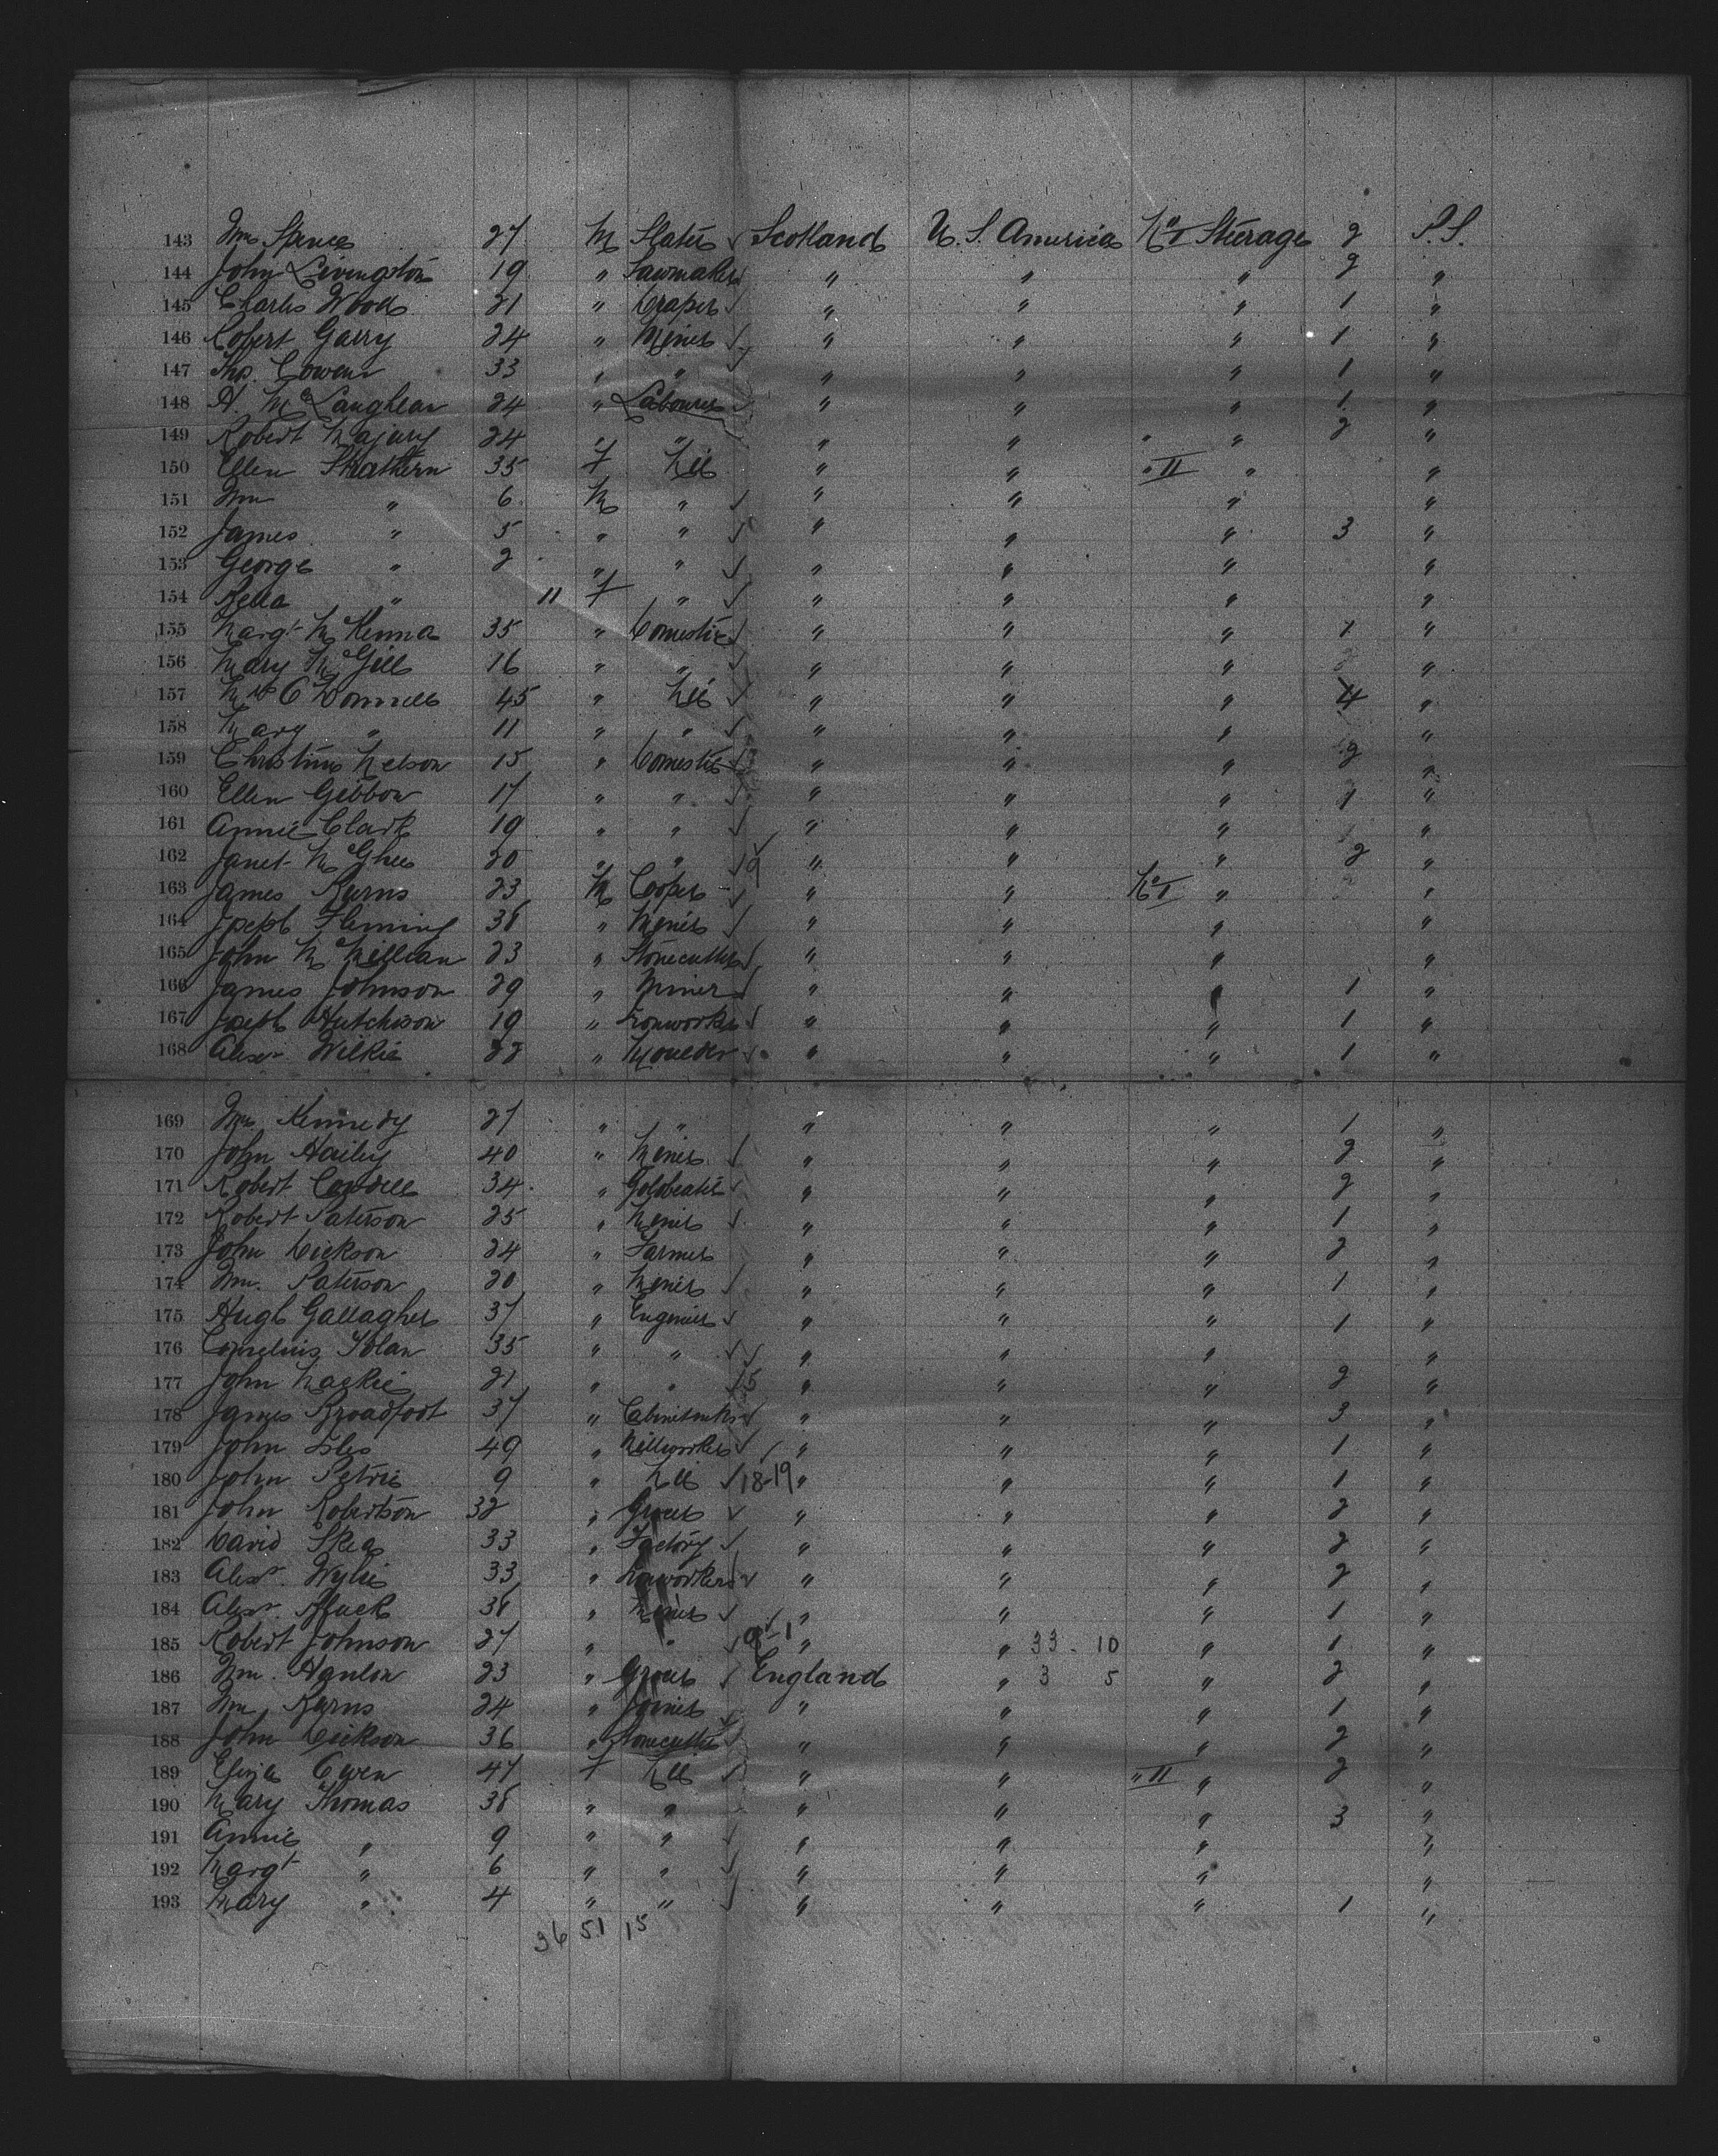 143 Wm Spence 27 M Slater ✓ Scotland U. S. America No I Steerage 2 P.S.
144 John Livingston 19 " Sawmaker ✓ " " " 2 "
145 Charles Wood 21 " Draper ✓ " " " 1 "
146 Robert Garry 24 " Miner ✓ " " " 1 "
147 Thos. Cowen 33 " " " " " 1 "
148 A. McLaughlan 24 " Labourer ✓ " " " 1 "
149 Robert Majury 24 " " " " " " 2 "
150 Ellen Strathern 35 F Nil " " " II " "
151 Wm " 6 M " ✓ " " " "
152 James " 5 " " ✓ " " " 3 "
153 George " 2 " " ✓ " " " "
154 Bella " 11 F " ✓ " " " "
155 Margt McKenna 35 " Domestic ✓ " " " 1 "
156 Mary McGill 16 " " ✓ " " " "
157 Mrs O'Donnell 45 " Nil ✓ " " " 4 "
158 Mary " 11 " " ✓ " " " "
159 Christina Nelson 15 " Domestic ✓ " " " 2 "
160 Ellen Gibbon 17 " " ✓ " " " 1 "
161 Annie Clark 19 " " ✓ " " " "
162 Janet McGhee 20 " " ✓ 9 " " " 2 "
163 James Burns 23 M Cooper ✓ " " No I " "
164 Joseph Fleming 38 " Miner ✓ " " " "
165 John McMillan 23 " Stonecutter ✓ " " " "
166 James Johnson 29 " Miner ✓ " " " 1 "
167 Joseph Hutchison 19 " Ironworker ✓ " " " 1 "
168 Alexr Wilkie 22 " Moulder ✓ " " " 1 "
169 Wm Kennedy 27 " " " " " 1 "
170 John Hailey 40 " Miner ✓ " " " 2 "
171 Robert 34 " Goldbeater ✓ " " " 2 "
172 Robert Paterson 25 " Miner ✓ " " " 1 "
173 John Dickson 24 " Farmer " " " 2 "
174 Wm. Paterson 20 " Miner ✓ " " " 1 "
175 Hugh Gallagher 37 " Engenier ✓ " " " 1 "
176 Cornelius 35 " " ✓ ✓ " " " "
177 John Mackie 21 " " ✓ 5 " " " 2 "
178 James Broadfoot 37 " Cabinetmkr ✓ " " " 3 "
179 John Isles 49 " Millworker ✓ " " " 1 "
180 John Petrie 9 " Nil ✓ 18-19 " " " 1 "
181 John Robertson 32 " Grocer ✓ " " " 2 "
182 David Skea 33 " Factory ✓ " " " 2 "
183 Alexr. Wylie 33 " Ironworker ✓ " " " 2 "
184 Alexr. Black 38 " Miner ✓ " " " 1 "
185 Robert Johnson 27 " " ✓ 9-1 " " 33 - 10 " 1 "
186 Wm. Hanlon 23 " Grocer ✓ England " 3 5 " 2 "
187 Wm Burns 24 " Joiner " " " 1 "
188 John Dickson 36 " Stonecutter ✓ " " " 2 "
189 Eliza Owen 47 F Nil ✓ " " " II " 2 "
190 Mary Thomas 38 " " " " " 3 "
191 Annie " 9 " " ✓ " " " "
192 Margt " 6 " " ✓ " " " "
193 Mary " 4 " " ✓ " " " 1 "
36 51 15